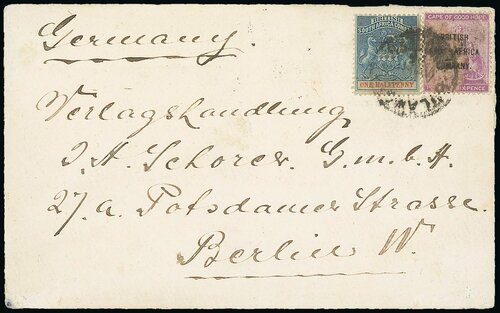 Germany.
BRITISH
SOUTH AFRICA COMPANY
ONE HALFPENNY
CAPE OF GOOD HOPE
BRITISH
AFRICA
COMPANY.
SIXPENCE
Verlagshandlung
J. H. Schorer. G.m.b.H.
27. a. Potsdamer Strasse.
Berlin W.